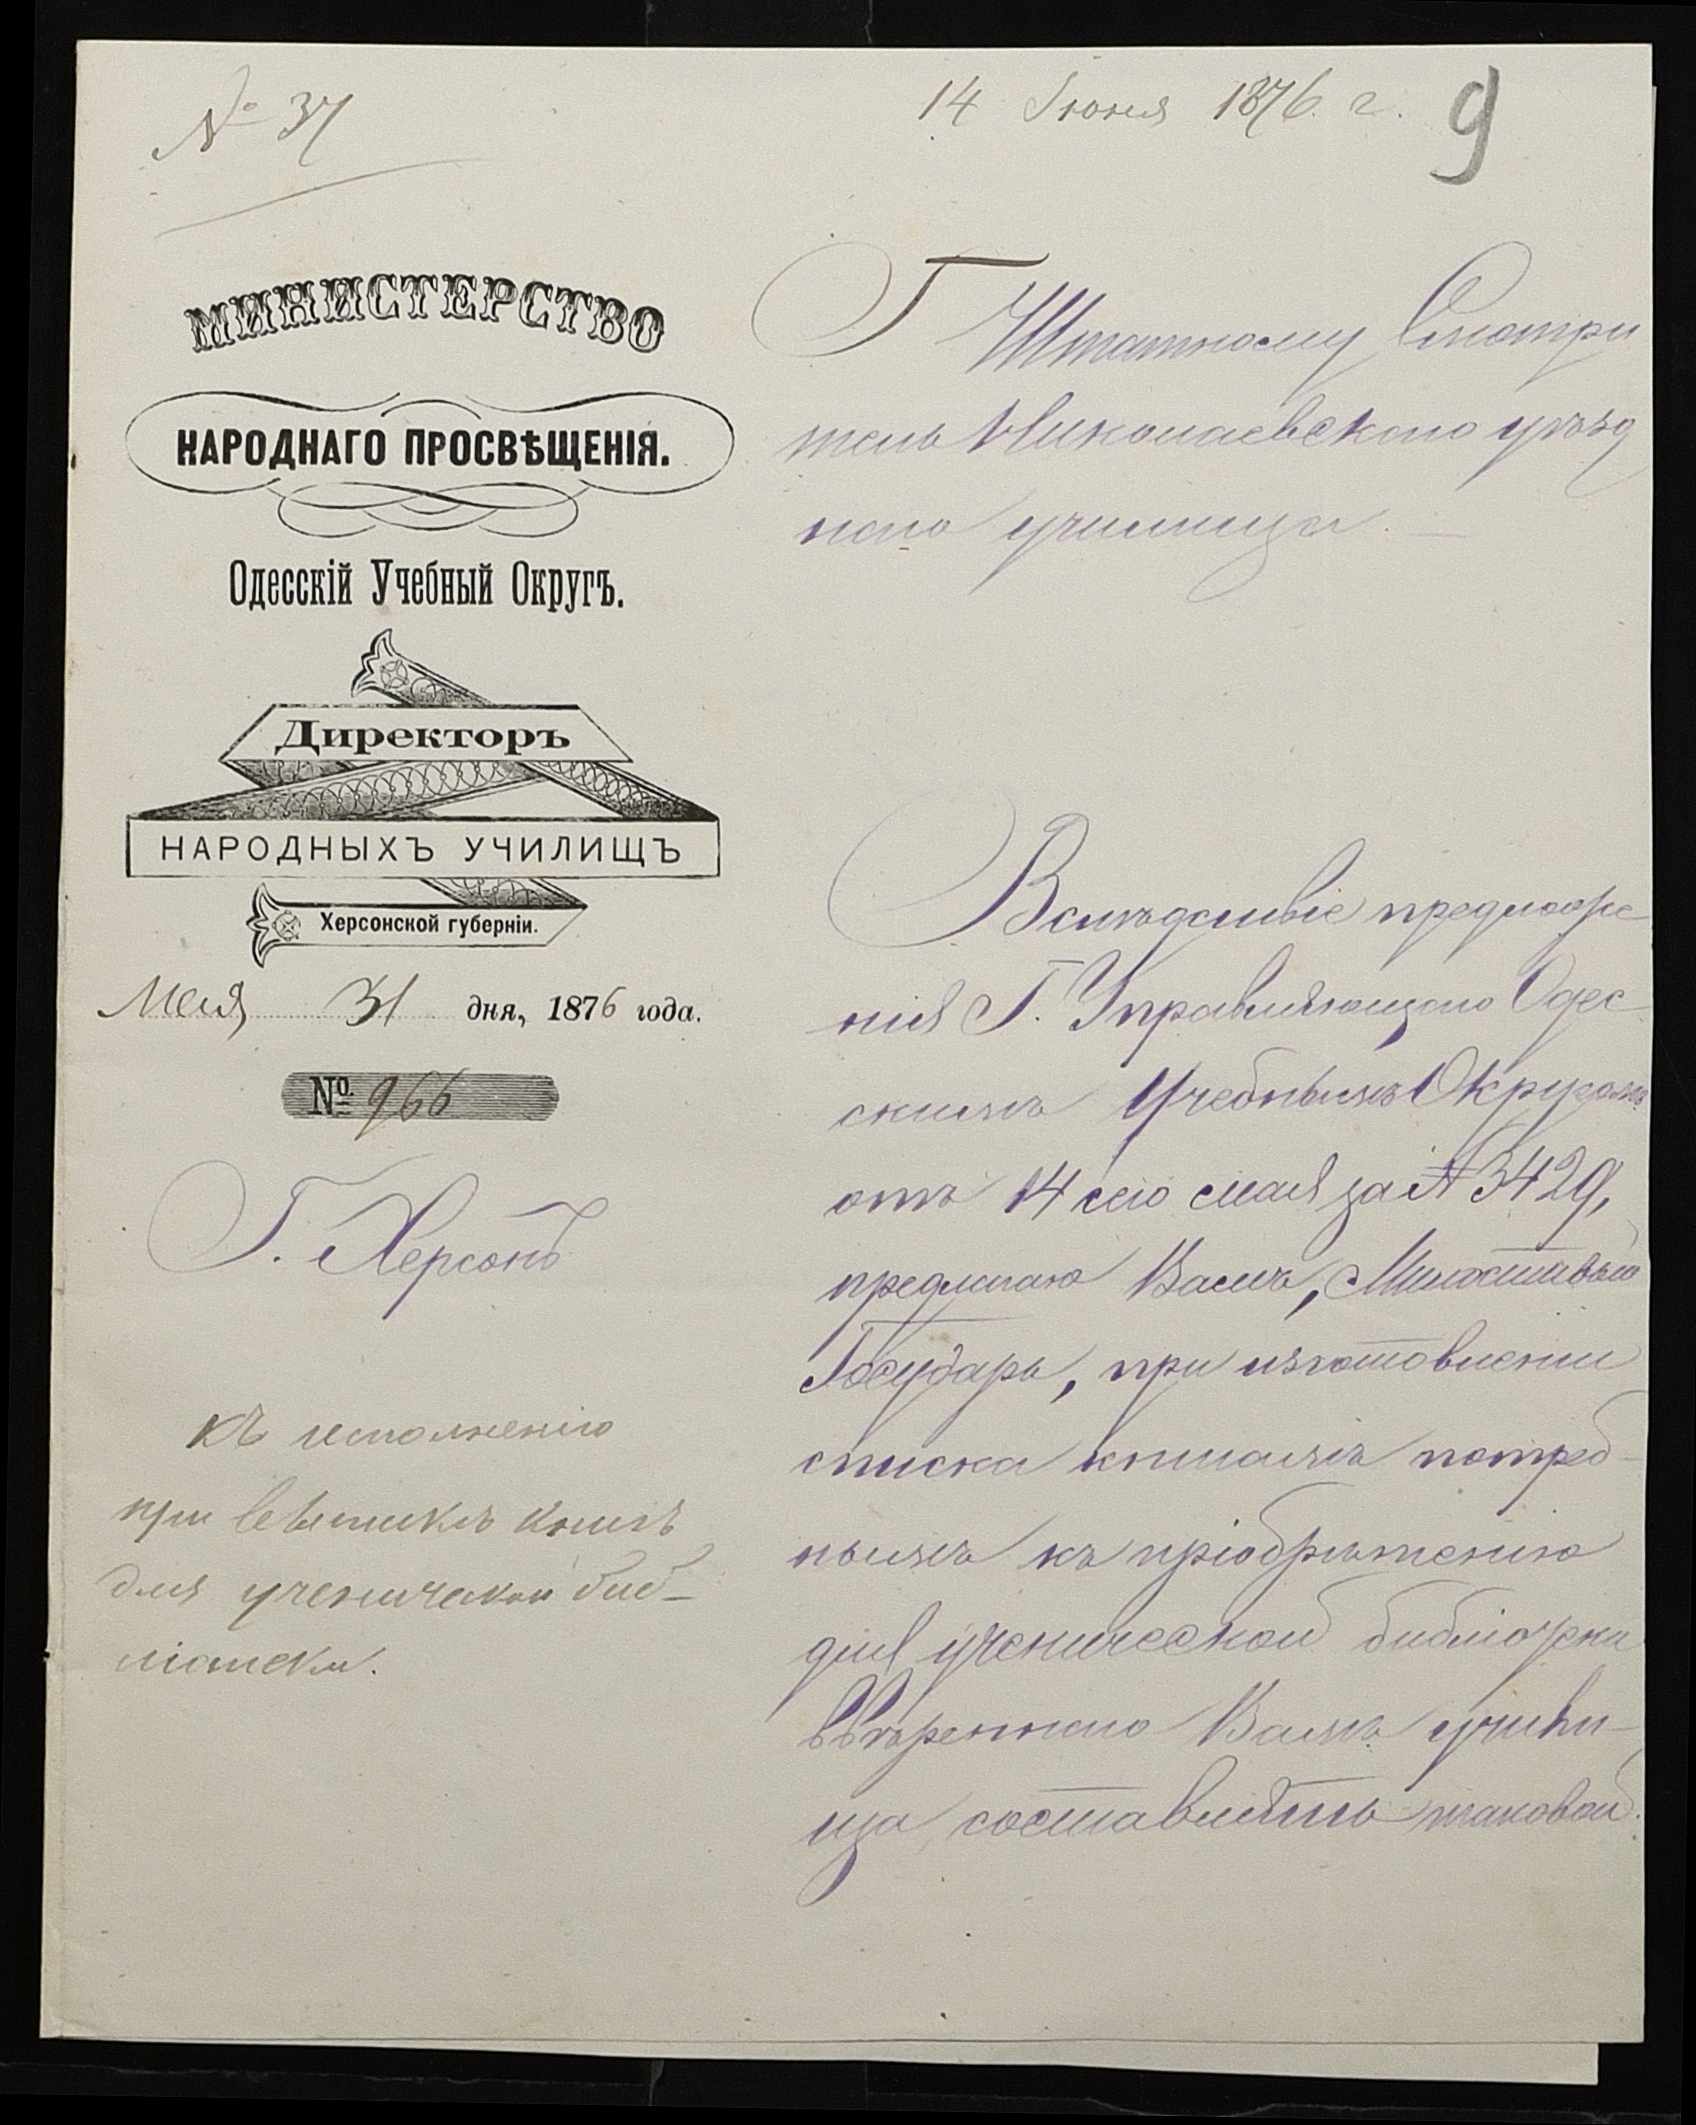 № 37
14 Июня 1876 г.
9
МИНИСТЕРСТВО
НАРОДНАГО ПРОСВѢЩЕНІЯ.
Одесскій Учебный Округъ.
Директоръ
НАРОДНЫХЪ УЧИЛИЩЪ
Херсонской губерніи.
Мая 31 дня, 1876 года.
№ 966
Г. Херсонъ
къ исполненію
при выпискѣ книгъ
для ученической биб-
ліотеки.
Г Штатному Смотри
телю Николаевскаго уѣзд
наго училища. —
Вслѣдствіе предложе-
нія Г. Управляющаго Одес-
скимъ Учебнымъ Округомъ
отъ 14 сего мая за № 3429,
предлагаю Вамъ, Милостивый
Государь, при изготовленіи
списка книгамъ потреб-
нымъ къ пріобрѣтенію
для ученической библіотеки
ввѣреннаго Вамъ учили-
ща, составлять таковой